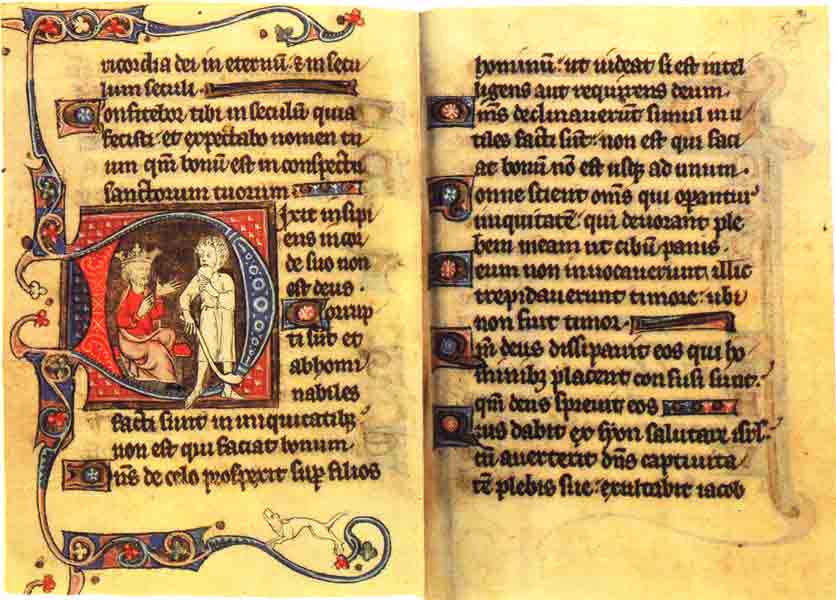 ricordia dei in eternū · & in secu
lum seculi ·
Confitebor tibi in seculū quia
fecisti · et expectabo nomen tu
um qm̄ bonū est in conspectu
sanctorum tuorum
Dixit insipi
ens in cor
de suo non
est deus ·
Corrup
ti sūt et
abhomi
nabiles
facti sunt in iniquitatibꝫ
non est qui faciat bonum
Dn̄s de celo prospexit suꝑ filios
hominū : ut uideat si est intel
ligens aut requirens deum ·
Om̄s declinauerunt simul inu
tiles facti sūt : non est qui faci
at bonū nō est usqꝫ ad unum ·
Nonne scient om̄s qui operantur
iniquitatē : qui deuorant ple
bem meam ut cibū panis ·
Deum non inuocauerunt illic
trepidauerunt timore : ubi
non fuit timor ·
Qm̄ deus dissipauit eos qui ho
minibꝫ placent confusi sunt :
qm̄ deus spreuit eos
Quis dabit ex syon salutare isrl̄ :
cū auerterit dn̄s captiuita
tē plebis sue : exultabit iacob